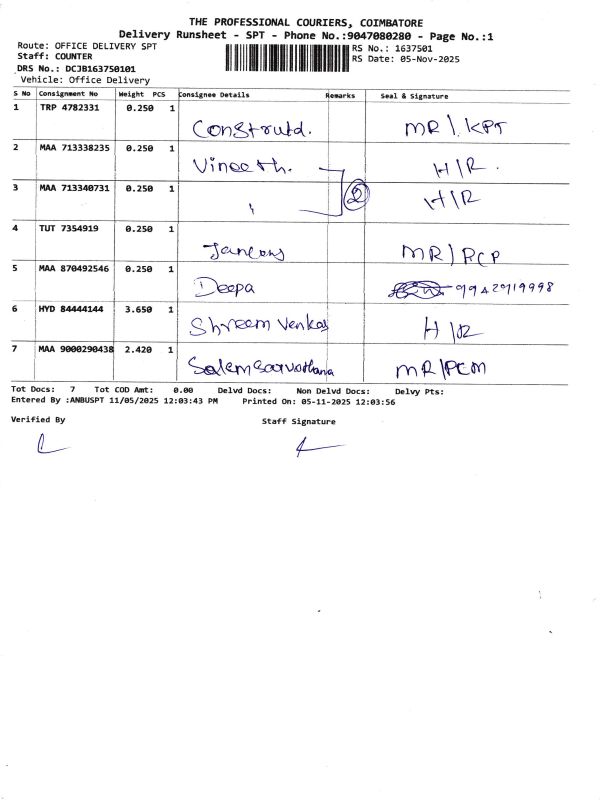 THE PROFESSIONAL COURIERS, COIMBATORE
Delivery Runsheet - SPT - Phone No.:9047080280 - Page No.:1
Route: OFFICE DELIVERY SPT RS No.: 1637501
Staff: COUNTER RS Date: 05-Nov-2025
DRS No.: DCJB163750101
Vehicle: Office Delivery
S No Consignment No Weight PCS Consignee Details Remarks Seal & Signature
1 TRP 4782331 0.250 1
Construtd. MR|. KPT
2 MAA 713338235 0.250 1
Vineeth. H|R.
3 MAA 713340731 0.250 1
2 H|R
4 TUT 7354919 0.250 1
MR|PCP
5 MAA 870492546 0.250 1
Deepa 9942919998
6 HYD 84444144 3.650 1
Shreem Venkas H|R
7 MAA 9000290438 2.420 1
Salem Saravathana MR|PCM
Tot Docs: 7 Tot COD Amt: 0.00 Delvd Docs: Non Delvd Docs: Delvy Pts:
Entered By :ANBUSPT 11/05/2025 12:03:43 PM Printed On: 05-11-2025 12:03:56
Verified By Staff Signature